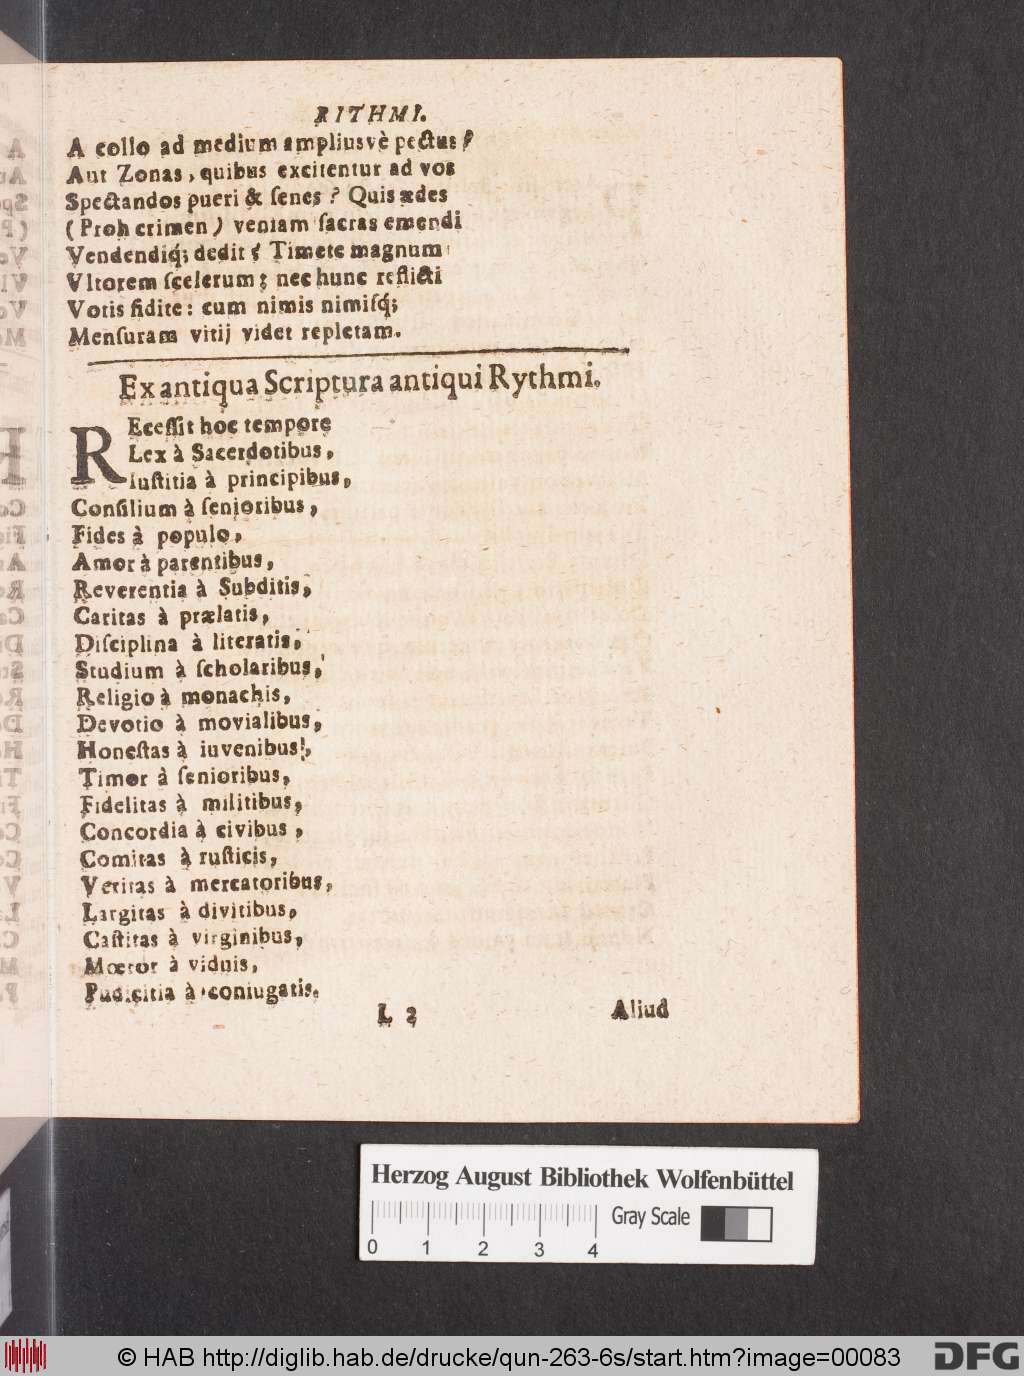 RITHMI.
A collo ad medium ampliusvè pectus?
Aut Zonas, quibus excitentur ad vos
Spectandos pueri & ſenes? Quis ædes
(Proh crimen) veniam ſacras emendi
Vendendiq́; dedit? Timete magnum
Vltorem ſcelerum; nec hunc reflicti
Votis fidite: cum nimis nimiſq́;
Menſuram vitij videt repletam.
Ex antiqua Scriptura antiqui Rythmi.
REceſſit hoc tempore
Lex à Sacerdotibus,
Iuſtitia à principibus,
Conſilium à ſenioribus,
Fides à populo,
Amor à parentibus,
Reverentia à Subditis,
Caritas à prælatis,
Diſciplina à literatis,
Studium à ſcholaribus,
Religio à monachis,
Devotio à movialibus,
Honeſtas à iuvenibus,
Timor à ſenioribus,
Fidelitas à militibus,
Concordia à civibus,
Comitas à ruſticis,
Veritas à mercatoribus,
Largitas à divitibus,
Caſtitas à virginibus,
Mœror à viduis,
Pudicitia à coniugatis.
L 2 Aliud
Herzog August Bibliothek Wolfenbüttel
Gray Scale
0 1 2 3 4
© HAB http://diglib.hab.de/drucke/qun-263-6s/start.htm?image=00083
DFG